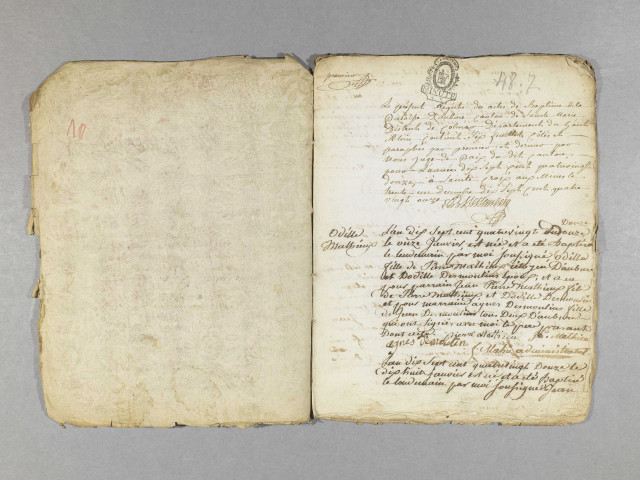 10
premier
48.2
Le présent Registre des actes de Baptême de la
Paroisse d'Aubure canton de Sainte Marie
District de Colmar département du haut
Rhin contenant Sept feuillets côtés et
paraphés par premier et dernier par
Nous juge de Paix du dit Canton
pour l'année dix Sept cent quatrevingt
douze, à Sainte Marie aux Mines le
trente un decembre dix Sept cent quatre
vingt onze
Odille
Mathieux
Douze
L'an dix Sept cent quatrevingt Douze
le onze Janvier est née et a été Baptisée
le lendemain par moi Soussigné Odille
fille de Pierre Mathieux citoyen D'aubure
et D'odille Desmoulins et a eu
pour parrain Jean Pierre Mathieux fils
de Pierre Mathieux et D'odille Desmoulins
et pour marraine agnes Desmoulins fille
de Jean Desmoulins tous Deux D'aubure
qui ont Signé avec moi
Dont acte pierre Mathieu Mathieu
agnes administrateur
L'an dix Sept cent quatrevingt Douze le
dix huit Janvier est né et a été Baptisé
le lendemain par moi Soussigné Jean